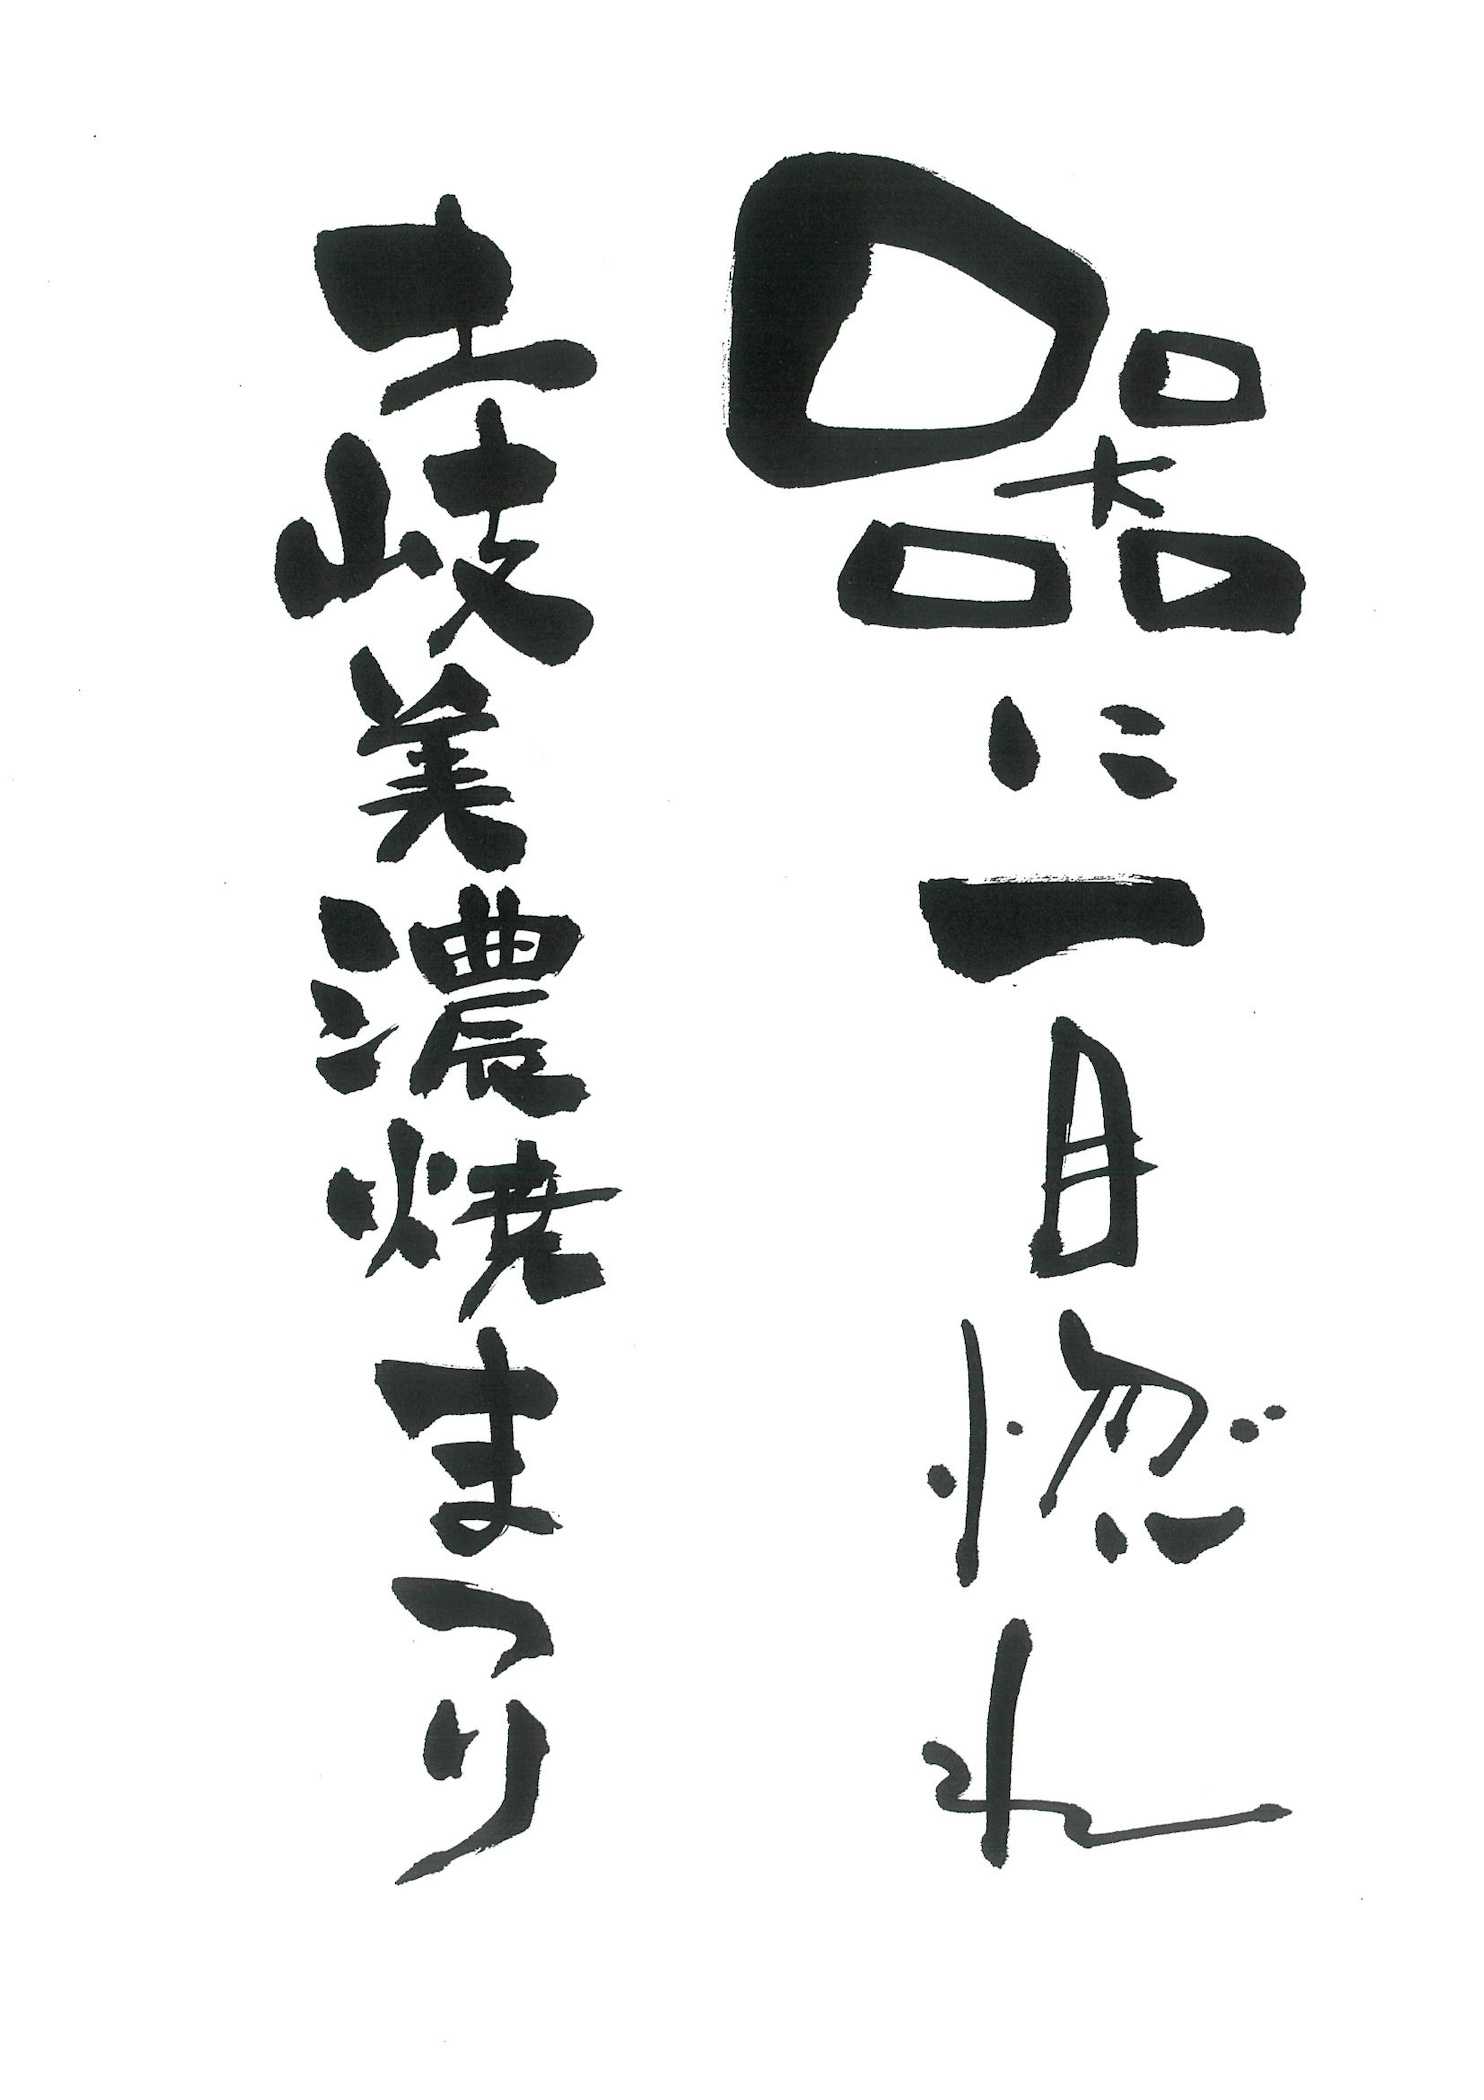 器に一目惚れ
土岐美濃焼まつり